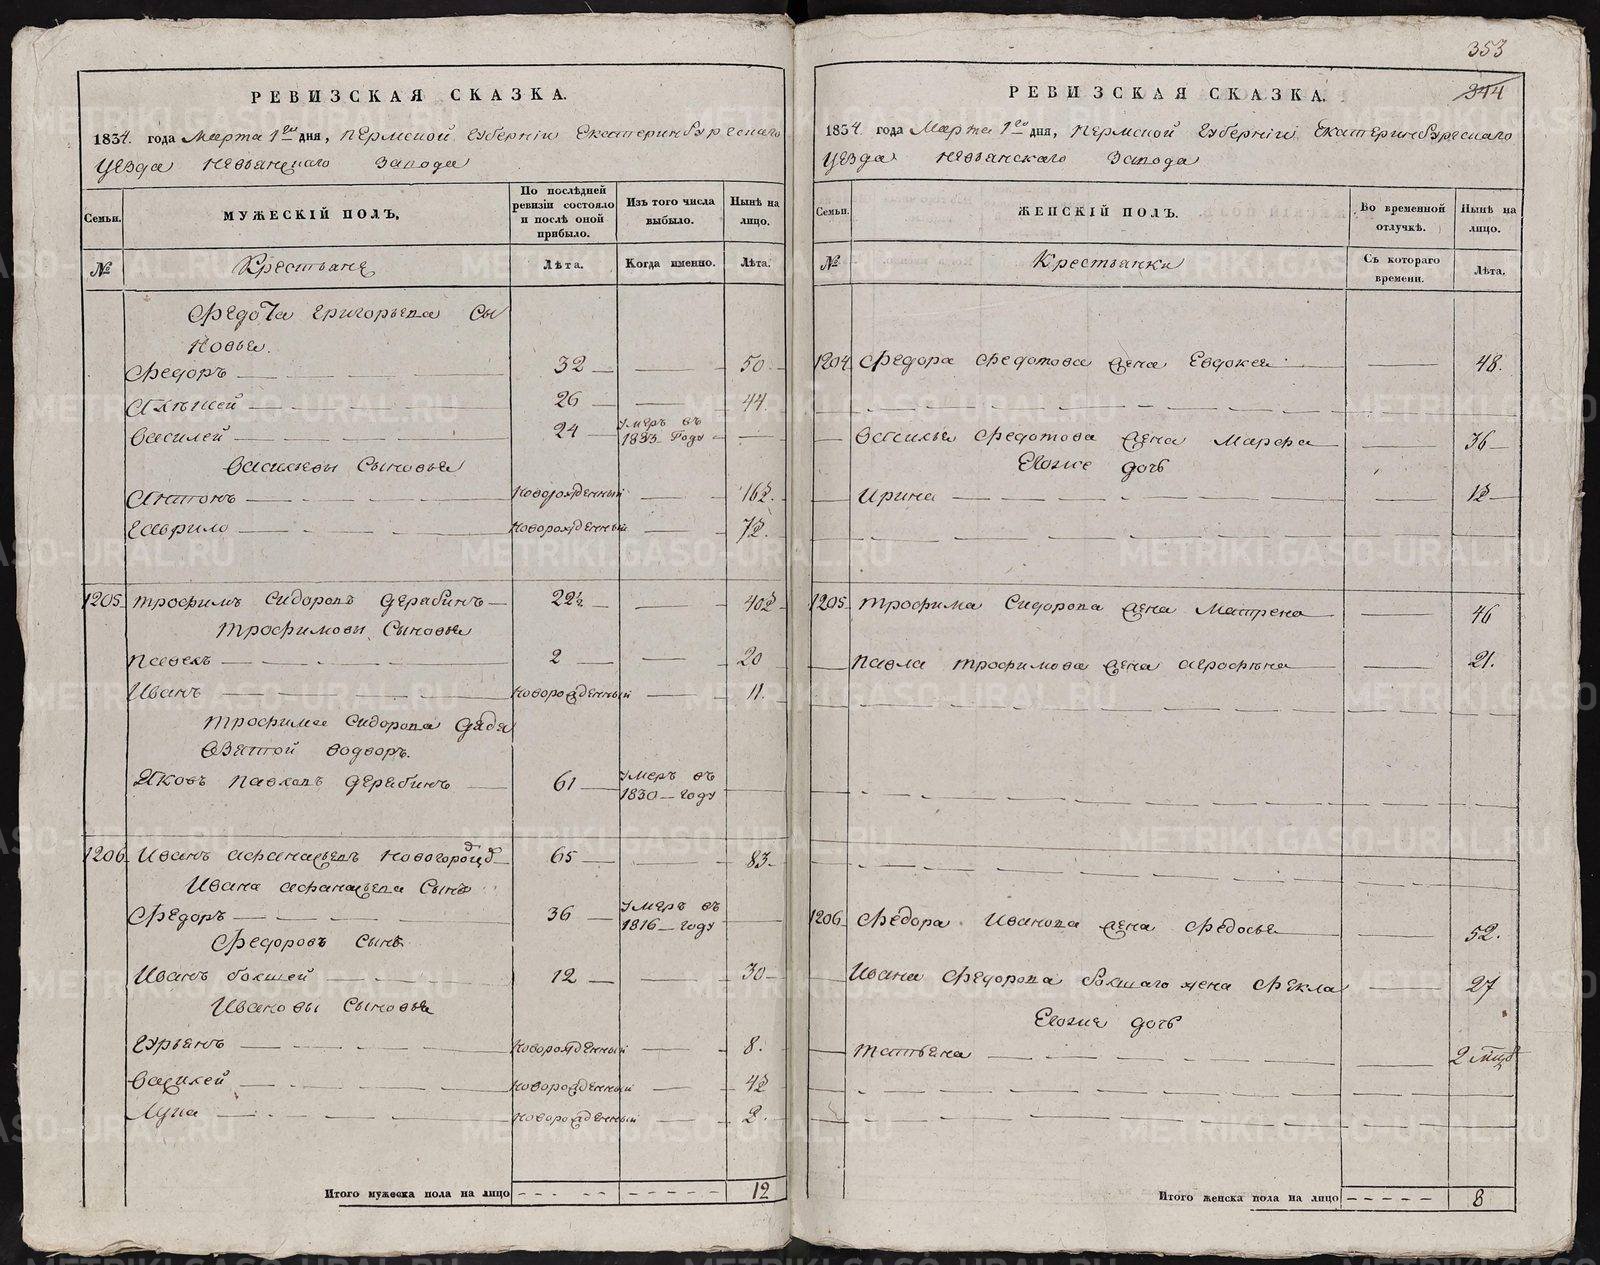 РЕВИЗСКАЯ СКАЗКА.
1834. года Марта 1го дня, Пермской Губернiи Екатеринбургскаго
Уезда Невьянскаго Завода
Семьи.
МУЖЕСКIЙ ПОЛЪ,
По послѣдней ревизiи состояло и послѣ оной прибыло.
Изъ того числа выбыло.
Нынѣ на лицо.
№
Крестьяне
Лѣта.
Когда именно.
Лѣта.
Федота Григорьева сы
новья.
Федоръ 32 50
Алексей 26 44.
Василей 24 умеръ въ 1833 году
Васильевы сыновья
Антонъ новорожденный 16½.
Гаврило новорожденный 7½.
1205 Трофимъ Сидоровъ Дерябинъ 22½ 40½
Трофимовы сыновья
Павелъ 2 20
Иванъ новорожденный 11.
Трофима Сидорова дядя
взятой водворъ.
Яковъ Павловъ Дерябинъ 61 умеръ въ 1830 году
1206 Иванъ Афанасьевъ 65 83.
Ивана Афанасьева сынъ
Федоръ 36 умеръ въ 1816 году
Федоровъ сынъ
Иванъ болшей 12 30
Ивановы сыновья
Гурьянъ новорожденный 8.
Василей новорожденный 4½
Лука новорожденный 2.
Итого мужеска пола на лицо 12
353
344
РЕВИЗСКАЯ СКАЗКА.
1834. года Марта 1го дня, Пермской Губернiи Екатеринбургскаго
Уезда Невьянскаго Завода
Семьи.
ЖЕНСКIЙ ПОЛЪ.
Во временной отлучкѣ.
Нынѣ на лицо.
№
Крестьянки
Съ котораго времени.
Лѣта.
1204 Федора Федотова жена Евдокея 48.
Василья Федотова жена Марфа 36
Еголже дочь
Ирина 1½
1205 Трофима Сидорова жена Матрена 46
Павла Трофимова жена Аграфѣна 21.
1206 Федора Иванова жена Федосья 52.
Ивана Федорова болшаго жена Фекла 27
Еголже дочь
Татьяна 2 мѣц
Итого женска пола на лицо 8
METRIKI.GASO-URAL.RU